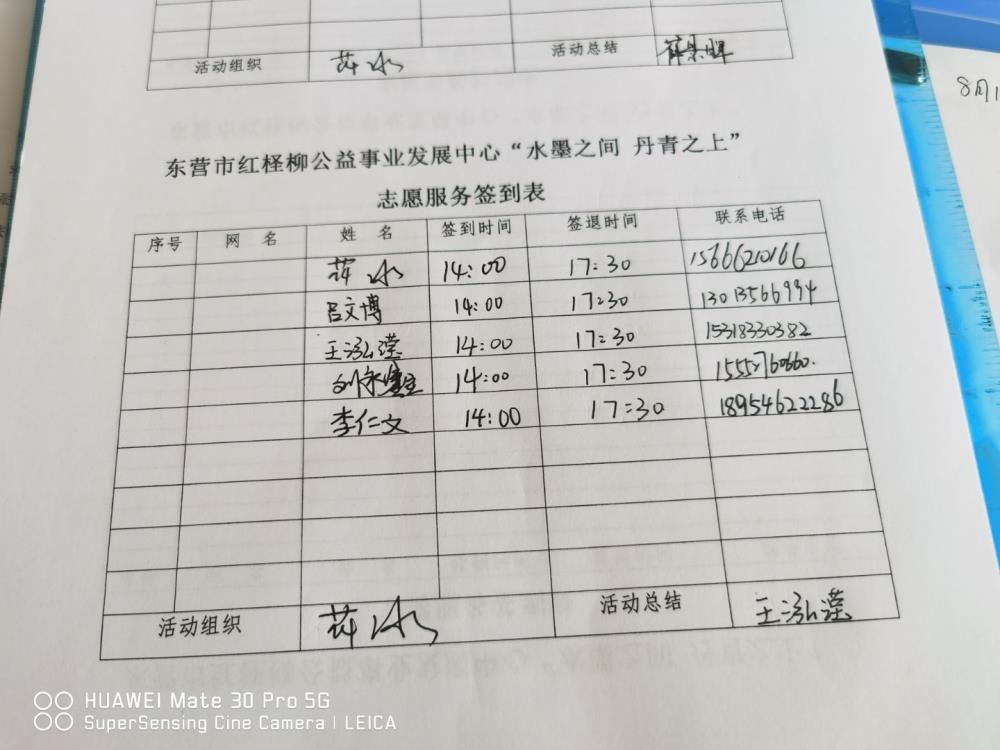 活动组织 苏冰 活动总结
8月1
东营市红柽柳公益事业发展中心“水墨之间 丹青之上”
志愿服务签到表
序号 网 名 姓 名 签到时间 签退时间 联系电话
苏冰 14:00 17:30 15666210166
吕文博 14:00 17:30 13013566994
王泓滢 14:00 17:30 15318330382
14:00 17:30
李仁文 14:00 17:30 18954622286
活动组织 苏冰 活动总结 王泓滢
HUAWEI Mate 30 Pro 5G
SuperSensing Cine Camera | LEICA